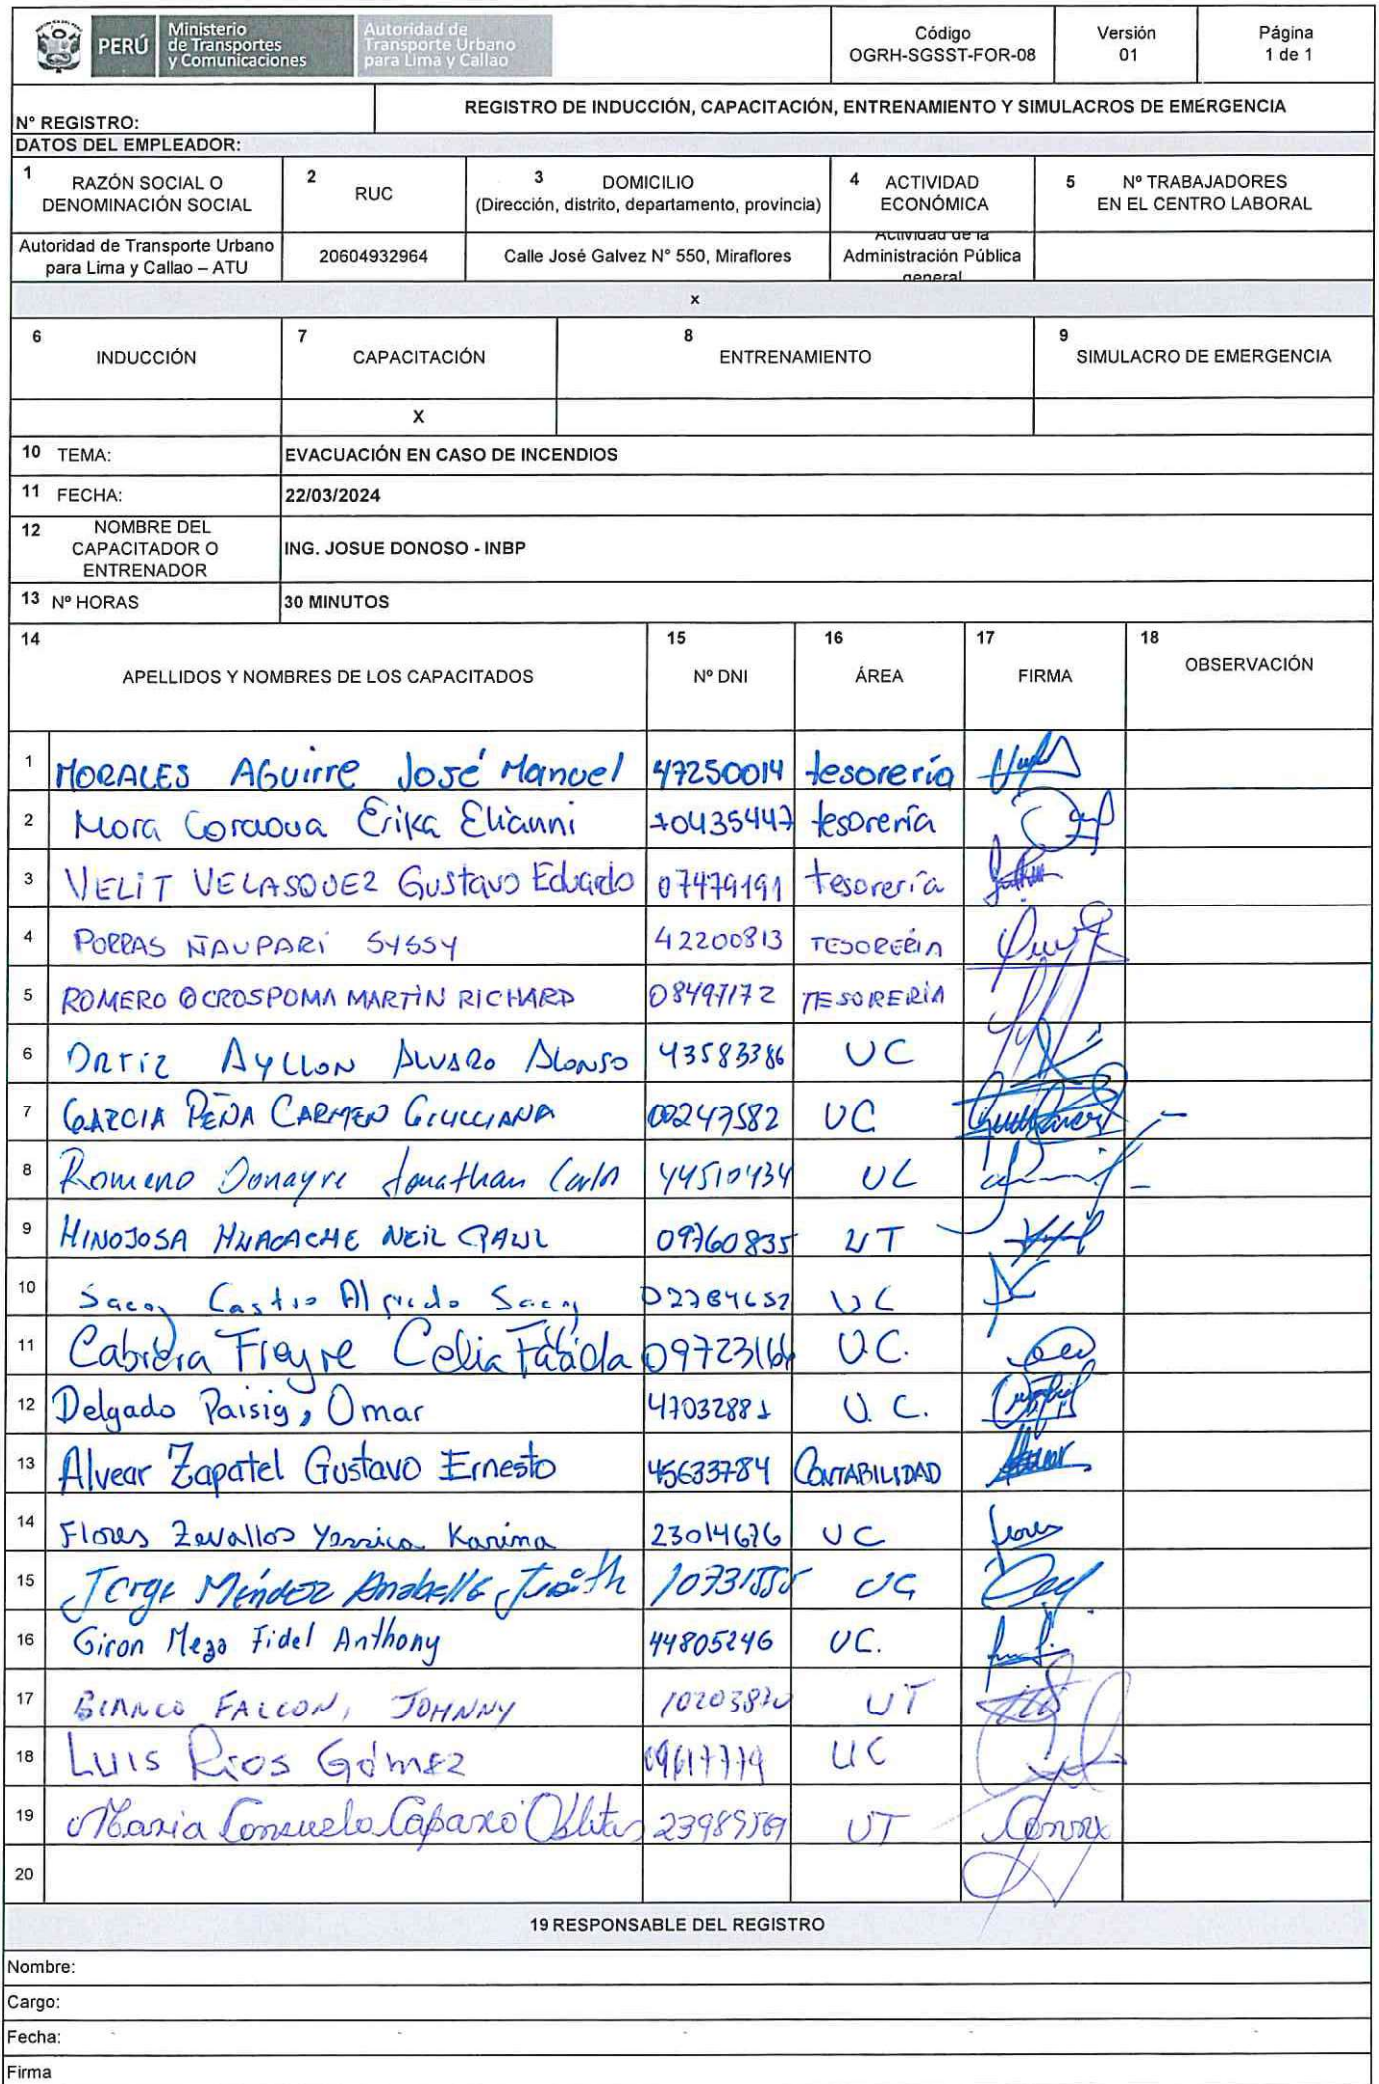 PERÚ Ministerio de Transportes y Comunicaciones
Autoridad de Transporte Urbano para Lima y Callao
Código OGRH-SGSST-FOR-08
Versión 01
Página 1 de 1
N° REGISTRO:
REGISTRO DE INDUCCIÓN, CAPACITACIÓN, ENTRENAMIENTO Y SIMULACROS DE EMERGENCIA
DATOS DEL EMPLEADOR:
1 RAZÓN SOCIAL O DENOMINACIÓN SOCIAL
2 RUC
3 DOMICILIO (Dirección, distrito, departamento, provincia)
4 ACTIVIDAD ECONÓMICA
5 Nº TRABAJADORES EN EL CENTRO LABORAL
Autoridad de Transporte Urbano para Lima y Callao – ATU
20604932964
Calle José Galvez N° 550, Miraflores
Actividad de la Administración Pública general
x
6 INDUCCIÓN
7 CAPACITACIÓN
8 ENTRENAMIENTO
9 SIMULACRO DE EMERGENCIA
X
10 TEMA: EVACUACIÓN EN CASO DE INCENDIOS
11 FECHA: 22/03/2024
12 NOMBRE DEL CAPACITADOR O ENTRENADOR ING. JOSUE DONOSO - INBP
13 Nº HORAS 30 MINUTOS
14 APELLIDOS Y NOMBRES DE LOS CAPACITADOS
15 Nº DNI
16 ÁREA
17 FIRMA
18 OBSERVACIÓN
1 MORALES AGuirre José Manuel 47250014 tesorería
2 Mora Cordova Erika Elianni 70435447 tesorería
3 VELIT VELASQUEZ Gustavo Eduardo 07479191 tesorería
4 PORRAS ÑAUPARI SYSSY 42200813 TESORERÍA
5 ROMERO OCROSPOMA MARTÍN RICHARD 08497172 TESORERÍA
6 ORTIZ AYLLON ALVARO ALONSO 43583386 UC
7 GARCIA PEÑA CARMEN GIULLIANA 02247582 UC
8 Romero Donayre Jonathan Carlos 44510434 UC
9 HINOJOSA HUACACHE NEIL PAUL 09760835 UT
10 Castro Alfredo UC
11 Cabrera Freyre Celia Fabiola U.C.
12 Delgado Paisig, Omar 47032881 U.C.
13 Alvear Zapatel Gustavo Ernesto 45633784 CONTABILIDAD
14 Flores Zevallos Yessica Karina 23014676 UC
15 Jorge Méndez Anabella Judith UC
16 Giron Meza Fidel Anthony 44805246 UC.
17 BLANCO FALCON, JOHNNY UT
18 Luis Rios Gómez 09617779 UC
19 Maria Consuelo Caparó Oblitas 23985569 UT
20
19 RESPONSABLE DEL REGISTRO
Nombre:
Cargo:
Fecha:
Firma